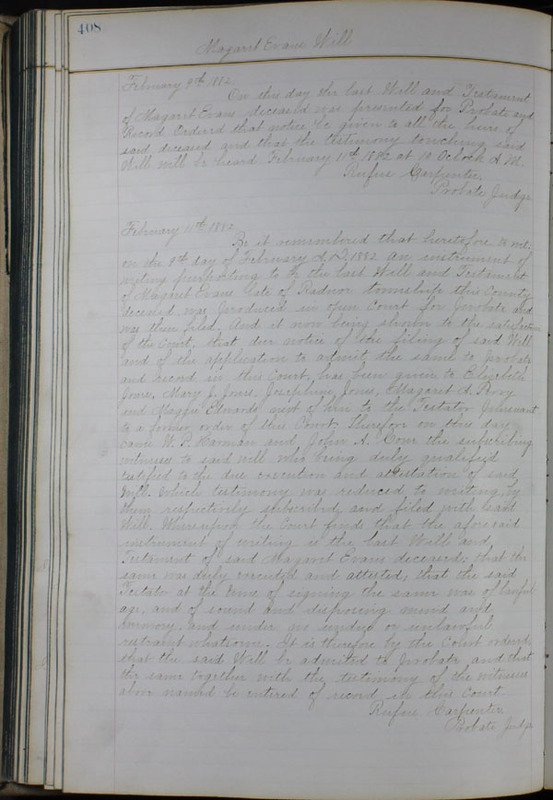 408
Magaret Evans Will
February 9th 1882
On this day the last Will and Testament
of Magaret Evans, deceased was presented for Probate and
Record. Ordered that notice be given to all the heirs of
said deceased and that the testimony touching said
Will will be heard February 11th 1882 at 10 Oclock A.M.
Rufus Carpenter,
Probate Judge
February 11th 1882.
Be it remembered that heretofore to wit:
on the 9th day of February A.D. 1882 an instrument of
writing purporting to be the last Will and Testament
of Magaret Evans late of Radnor township this County
deceased, was produced in open Court for probate and
was then filed. And it now being shown to the satisfaction
of the Court, that due notice of the filing of said Will
and of the application to admit the same to probate
and record in this Court, has been given to Elizebeth
Jones, Mary J. Jones, Josephine Jones, Magaret A. Perry
and Maggie Edwards next of kin to the Testator pursuant
to a former order of this Court, therefore on this day
came W. P. Harmon and John A. Cone the subscribing
witnesses to said will who being duly qualified
testified to the due execution and attestation of said
Will. Which testimony was reduced to writing by
them respectively subscribed and filed with said
Will. Whereupon the Court finds that the aforesaid
instrument of writing is the last Will and
Testament of said Magaret Evans deceased; that the
same was duly executed and attested, that the said
Testator at the time of signing the same was of lawful
age, and of sound and disposing mind and
memory, and under no undue or unlawful
restraint whatsoever. It is therefore by the Court ordered
that the said Will be admitted to probate, and that
the same together with the testimony of the witnesses
above named be entered of record in this Court.
Rufus Carpenter
Probate Judge